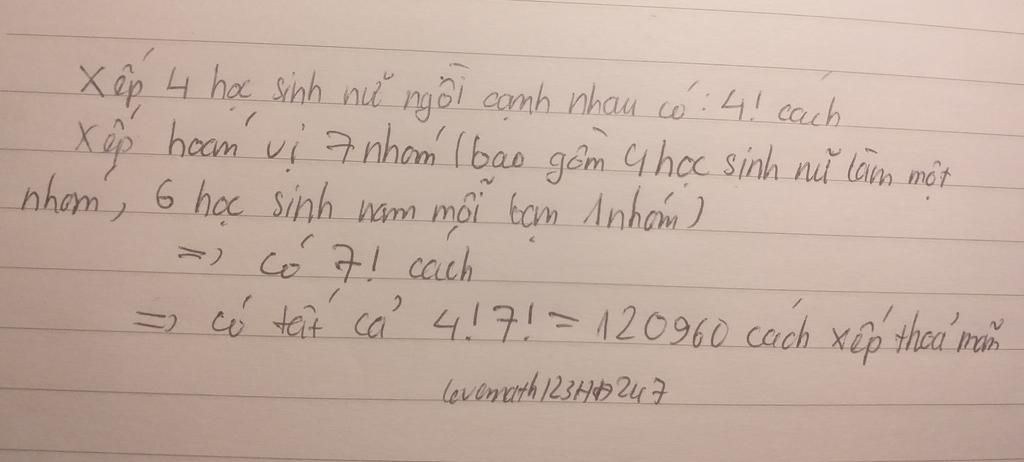 Xếp 4 học sinh nữ ngồi cạnh nhau có: 4! cách
Xếp hoán vị 7 nhóm (bao gồm 4 học sinh nữ làm một
nhóm, 6 học sinh nam mỗi bạn 1 nhóm)
=> có 7! cách
=> có tất cả 4!7! = 120960 cách xếp thoả mãn